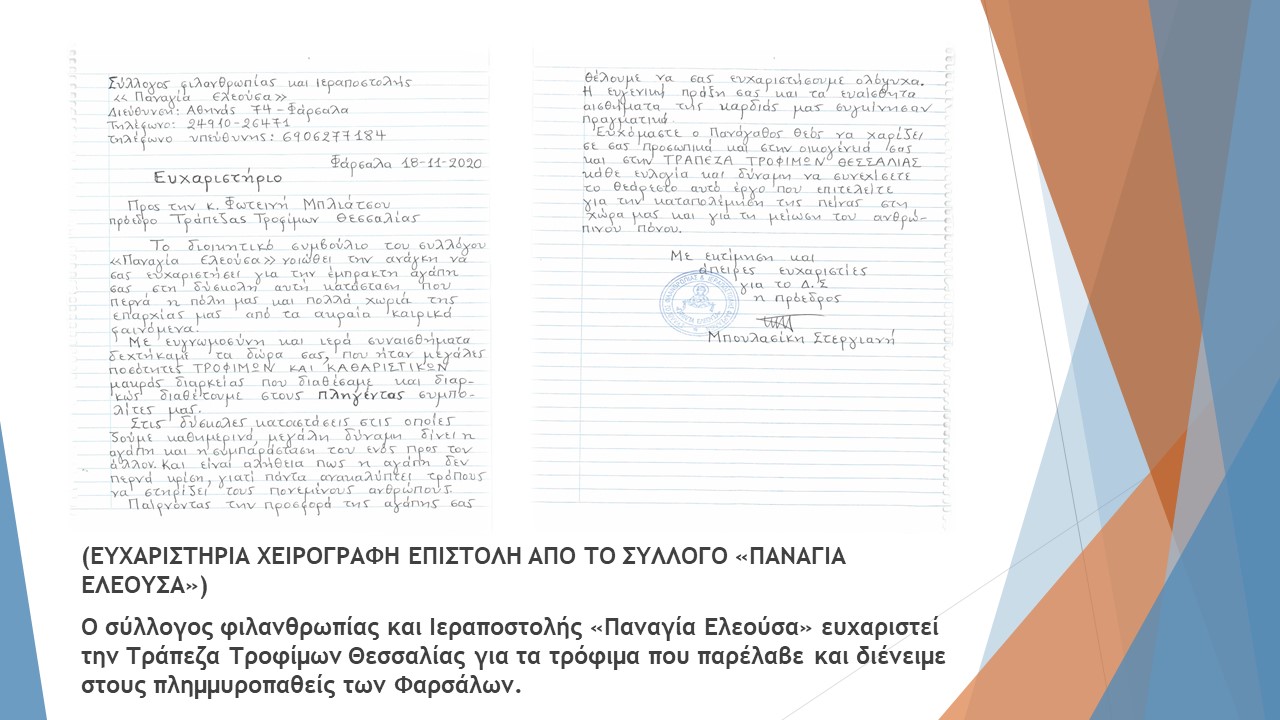 Σύλλογος φιλανθρωπίας και Ιεραποστολής
«Παναγία Ελεούσα»
Διεύθυνση: Αθηνάς 74 - Φάρσαλα
Τηλέφωνο: 24910-26471
τηλέφωνο υπεύθυνης: 6906277184
Φάρσαλα 18-11-2020
Ευχαριστήριο
Προς την κ. Φωτεινή Μπλιάτσου
πρόεδρο Τράπεζας Τροφίμων Θεσσαλίας
Το διοικητικό συμβούλιο του συλλόγου
«Παναγία Ελεούσα» νοιώθει την ανάγκη να
σας ευχαριστήσει για την έμπρακτη αγάπη
σας στη δύσκολη αυτή κατάσταση, που
περνά η πόλη μας και πολλά χωριά της
επαρχίας μας από τα ακραία καιρικά
φαινόμενα.
Με ευγνωμοσύνη και ιερά συναισθήματα
δεχτήκαμε τα δώρα σας, που ήταν μεγάλες
ποσότητες ΤΡΟΦΙΜΩΝ ΚΑΙ ΚΑΘΑΡΙΣΤΙΚΩΝ
μακράς διαρκείας που διαθέσαμε και διαρ-
κώς διαθέτουμε στους πληγέντας συμπο-
λίτες μας.
Στις δύσκολες καταστάσεις στις οποίες
ζούμε καθημερινά, μεγάλη δύναμη δίνει η
αγάπη και η συμπαράσταση του ενός προς τον
άλλον. Και είναι αλήθεια πως η αγάπη δεν
περνά κρίση, γιατί πάντα ανακαλύπτει τρόπους
να στηρίζει τους πονεμένους ανθρώπους.
Παίρνοντας την προσφορά της αγάπης σας
θέλουμε να σας ευχαριστήσουμε ολόψυχα.
Η ευγενική πράξη σας και τα ευαίσθητα
αισθήματα της καρδιάς μας συγκίνησαν
πραγματικά.
Ευχόμαστε ο Πανάγαθος Θεός να χαρίζει
σε σας προσωπικά και στην οικογένειά σας
και στην ΤΡΑΠΕΖΑ ΤΡΟΦΙΜΩΝ ΘΕΣΣΑΛΙΑΣ
κάθε ευλογία και δύναμη να συνεχίσετε
το θεάρεστο αυτό έργο που επιτελείτε
για την καταπολέμηση της πείνας στη
χώρα μας και για τη μείωση του ανθρώ-
πινου πόνου.
Με εκτίμηση και
άπειρες ευχαριστίες
για το Δ.Σ
η πρόεδρος
Μπουλασίκη Στεργιανή
(ΕΥΧΑΡΙΣΤΗΡΙΑ ΧΕΙΡΟΓΡΑΦΗ ΕΠΙΣΤΟΛΗ ΑΠΟ ΤΟ ΣΥΛΛΟΓΟ «ΠΑΝΑΓΙΑ
ΕΛΕΟΥΣΑ»)
Ο σύλλογος φιλανθρωπίας και Ιεραποστολής «Παναγία Ελεούσα» ευχαριστεί
την Τράπεζα Τροφίμων Θεσσαλίας για τα τρόφιμα που παρέλαβε και διένειμε
στους πλημμυροπαθείς των Φαρσάλων.